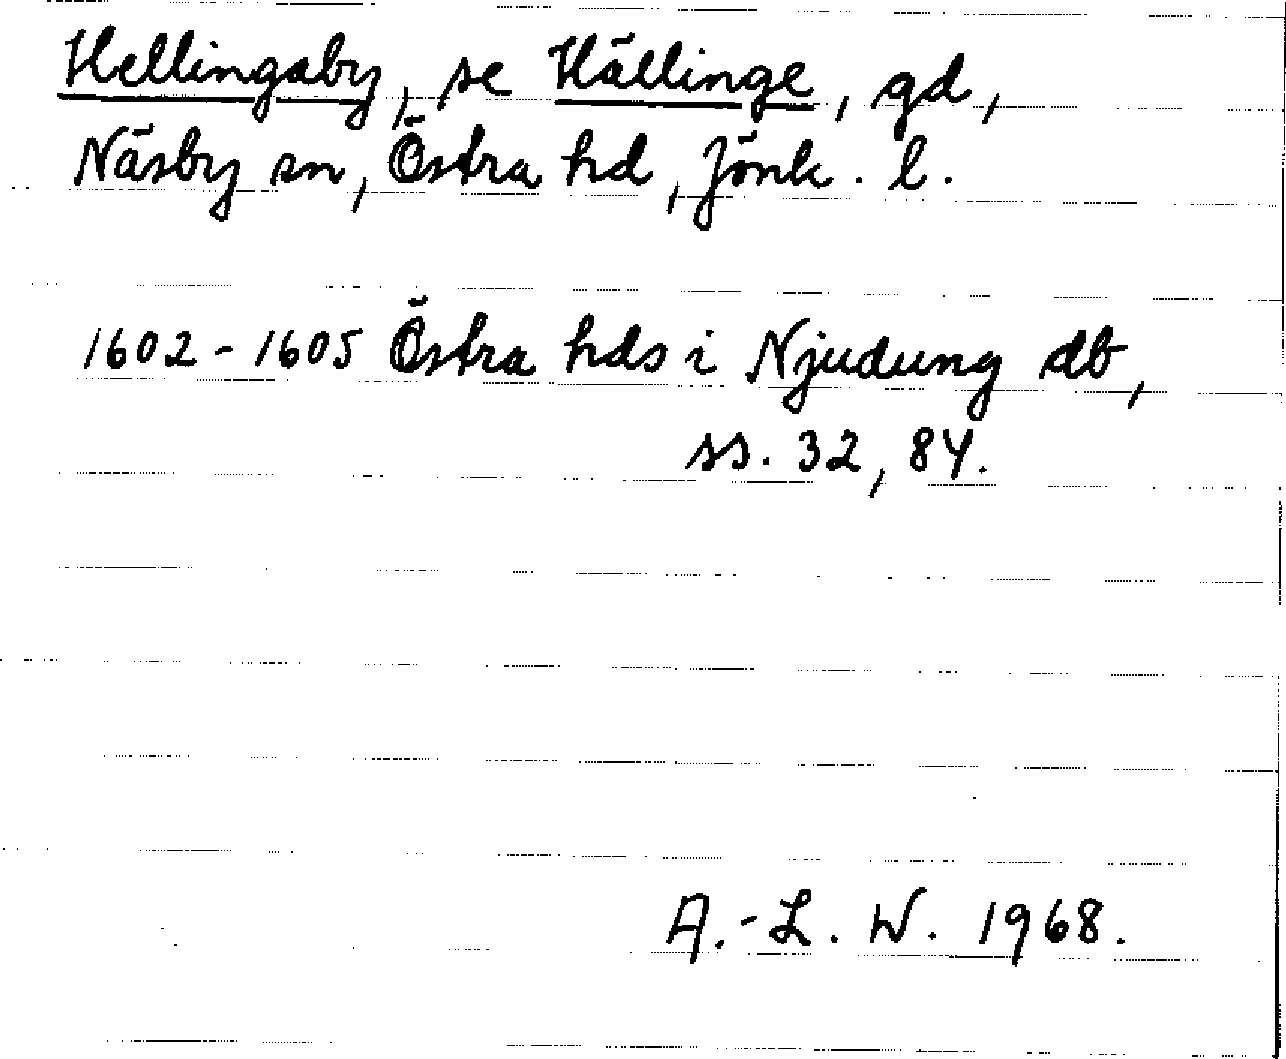 Hellingaby, se Hällinge, gd,
Näsby sn, Östra hd, Jönk. l.
1602-1605 Östra hds i Njudung db,
ss. 32, 84.
A.-L. W. 1968.